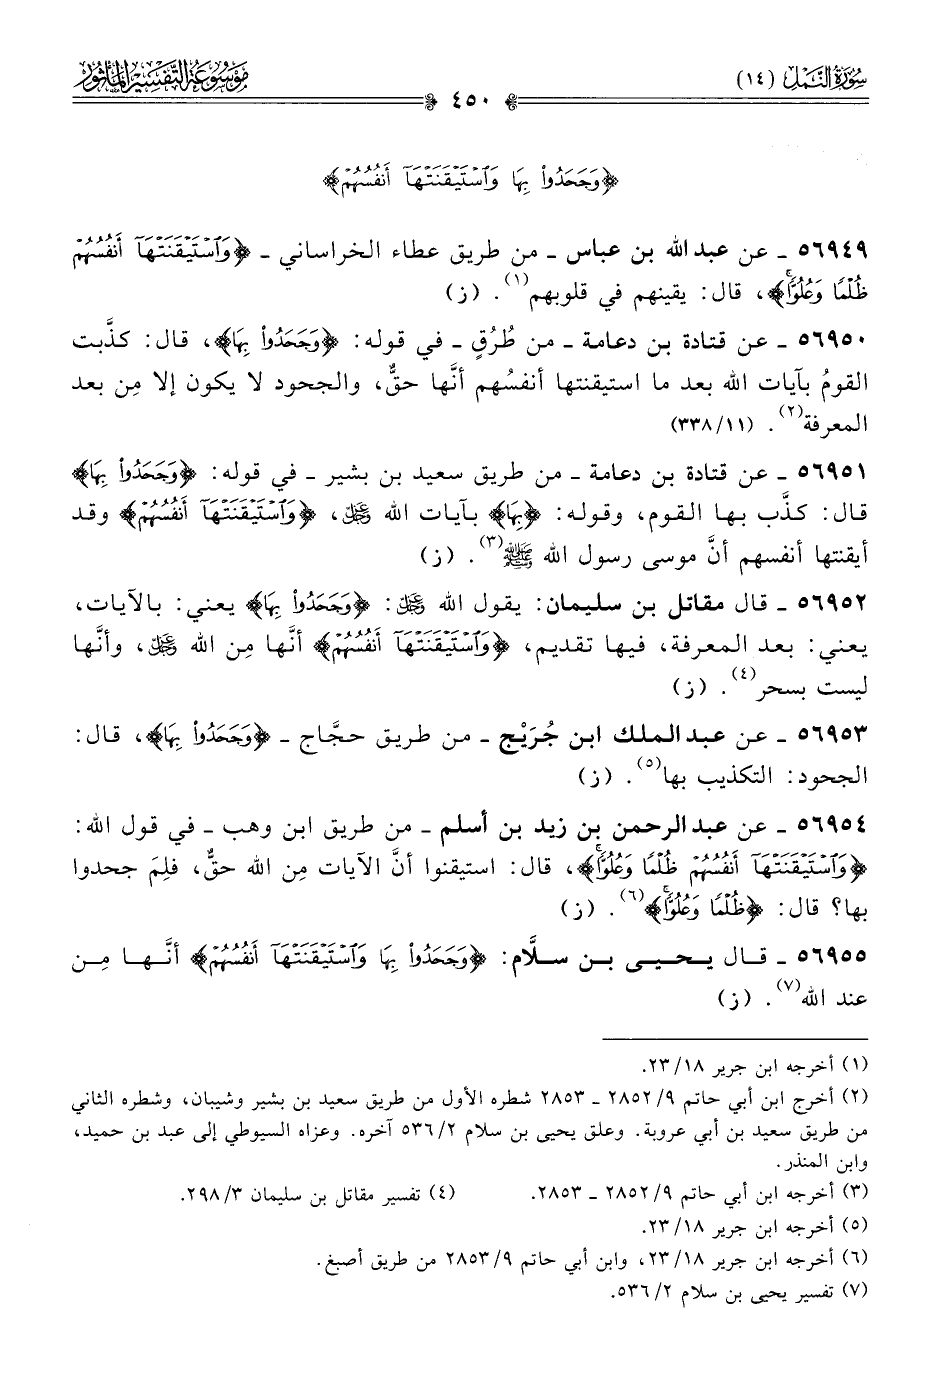 سُورَةُ النَّمْل (١٤)
موسوعة التفسير المأثور
٤٥٠
﴿وَجَحَدُوا۟ بِهَا وَٱسْتَيْقَنَتْهَآ أَنفُسُهُمْ﴾
٥٦٩٤٩ ـ عن عبد الله بن عباس ـ من طريق عطاء الخراساني ـ ﴿وَٱسْتَيْقَنَتْهَآ أَنفُسُهُمْ
ظُلْمًا وَعُلُوًّا﴾، قال: يقينهم في قلوبهم(١). (ز)
٥٦٩٥٠ ـ عن قتادة بن دعامة ـ من طُرُقٍ ـ في قوله: ﴿وَجَحَدُوا۟ بِهَا﴾، قال: كذَّبت
القومُ بآيات الله بعد ما استيقنتها أنفسُهم أنَّها حقٌّ، والجحود لا يكون إلا مِن بعد
المعرفة(٢). (٣٣٨/١١)
٥٦٩٥١ ـ عن قتادة بن دعامة ـ من طريق سعيد بن بشير ـ في قوله: ﴿وَجَحَدُوا۟ بِهَا﴾
قال: كذَّب بها القوم، وقوله: ﴿بِهَا﴾ بآيات الله ﷿، ﴿وَٱسْتَيْقَنَتْهَآ أَنفُسُهُمْ﴾ وقد
أيقنتها أنفسهم أنَّ موسى رسول الله ﷺ(٣). (ز)
٥٦٩٥٢ ـ قال مقاتل بن سليمان: يقول الله ﷿: ﴿وَجَحَدُوا۟ بِهَا﴾ يعني: بالآيات،
يعني: بعد المعرفة، فيها تقديم، ﴿وَٱسْتَيْقَنَتْهَآ أَنفُسُهُمْ﴾ أنَّها مِن الله ﷿، وأنَّها
ليست بسحر(٤). (ز)
٥٦٩٥٣ ـ عن عبد الملك ابن جُرَيْج ـ من طريق حجَّاج ـ ﴿وَجَحَدُوا۟ بِهَا﴾، قال:
الجحود: التكذيب بها(٥). (ز)
٥٦٩٥٤ ـ عن عبد الرحمن بن زيد بن أسلم ـ من طريق ابن وهب ـ في قول الله:
﴿وَٱسْتَيْقَنَتْهَآ أَنفُسُهُمْ ظُلْمًا وَعُلُوًّا﴾، قال: استيقنوا أنَّ الآيات مِن الله حقٌّ، فلِمَ جحدوا
بها؟ قال: ﴿ظُلْمًا وَعُلُوًّا﴾(٦). (ز)
٥٦٩٥٥ ـ قال يحيى بن سلَّام: ﴿وَجَحَدُوا۟ بِهَا وَٱسْتَيْقَنَتْهَآ أَنفُسُهُمْ﴾ أنَّها مِن
عند الله(٧). (ز)
(١) أخرجه ابن جرير ١٨/ ٢٣.
(٢) أخرج ابن أبي حاتم ٩/ ٢٨٥٢ ـ ٢٨٥٣ شطره الأول من طريق سعيد بن بشير وشيبان، وشطره الثاني
من طريق سعيد بن أبي عروبة. وعلق يحيى بن سلام ٢/ ٥٣٦ آخره. وعزاه السيوطي إلى عبد بن حميد،
وابن المنذر.
(٣) أخرجه ابن أبي حاتم ٩/ ٢٨٥٢ ـ ٢٨٥٣. (٤) تفسير مقاتل بن سليمان ٣/ ٢٩٨.
(٥) أخرجه ابن جرير ١٨/ ٢٣.
(٦) أخرجه ابن جرير ١٨/ ٢٣، وابن أبي حاتم ٩/ ٢٨٥٣ من طريق أصبغ.
(٧) تفسير يحيى بن سلام ٢/ ٥٣٦.